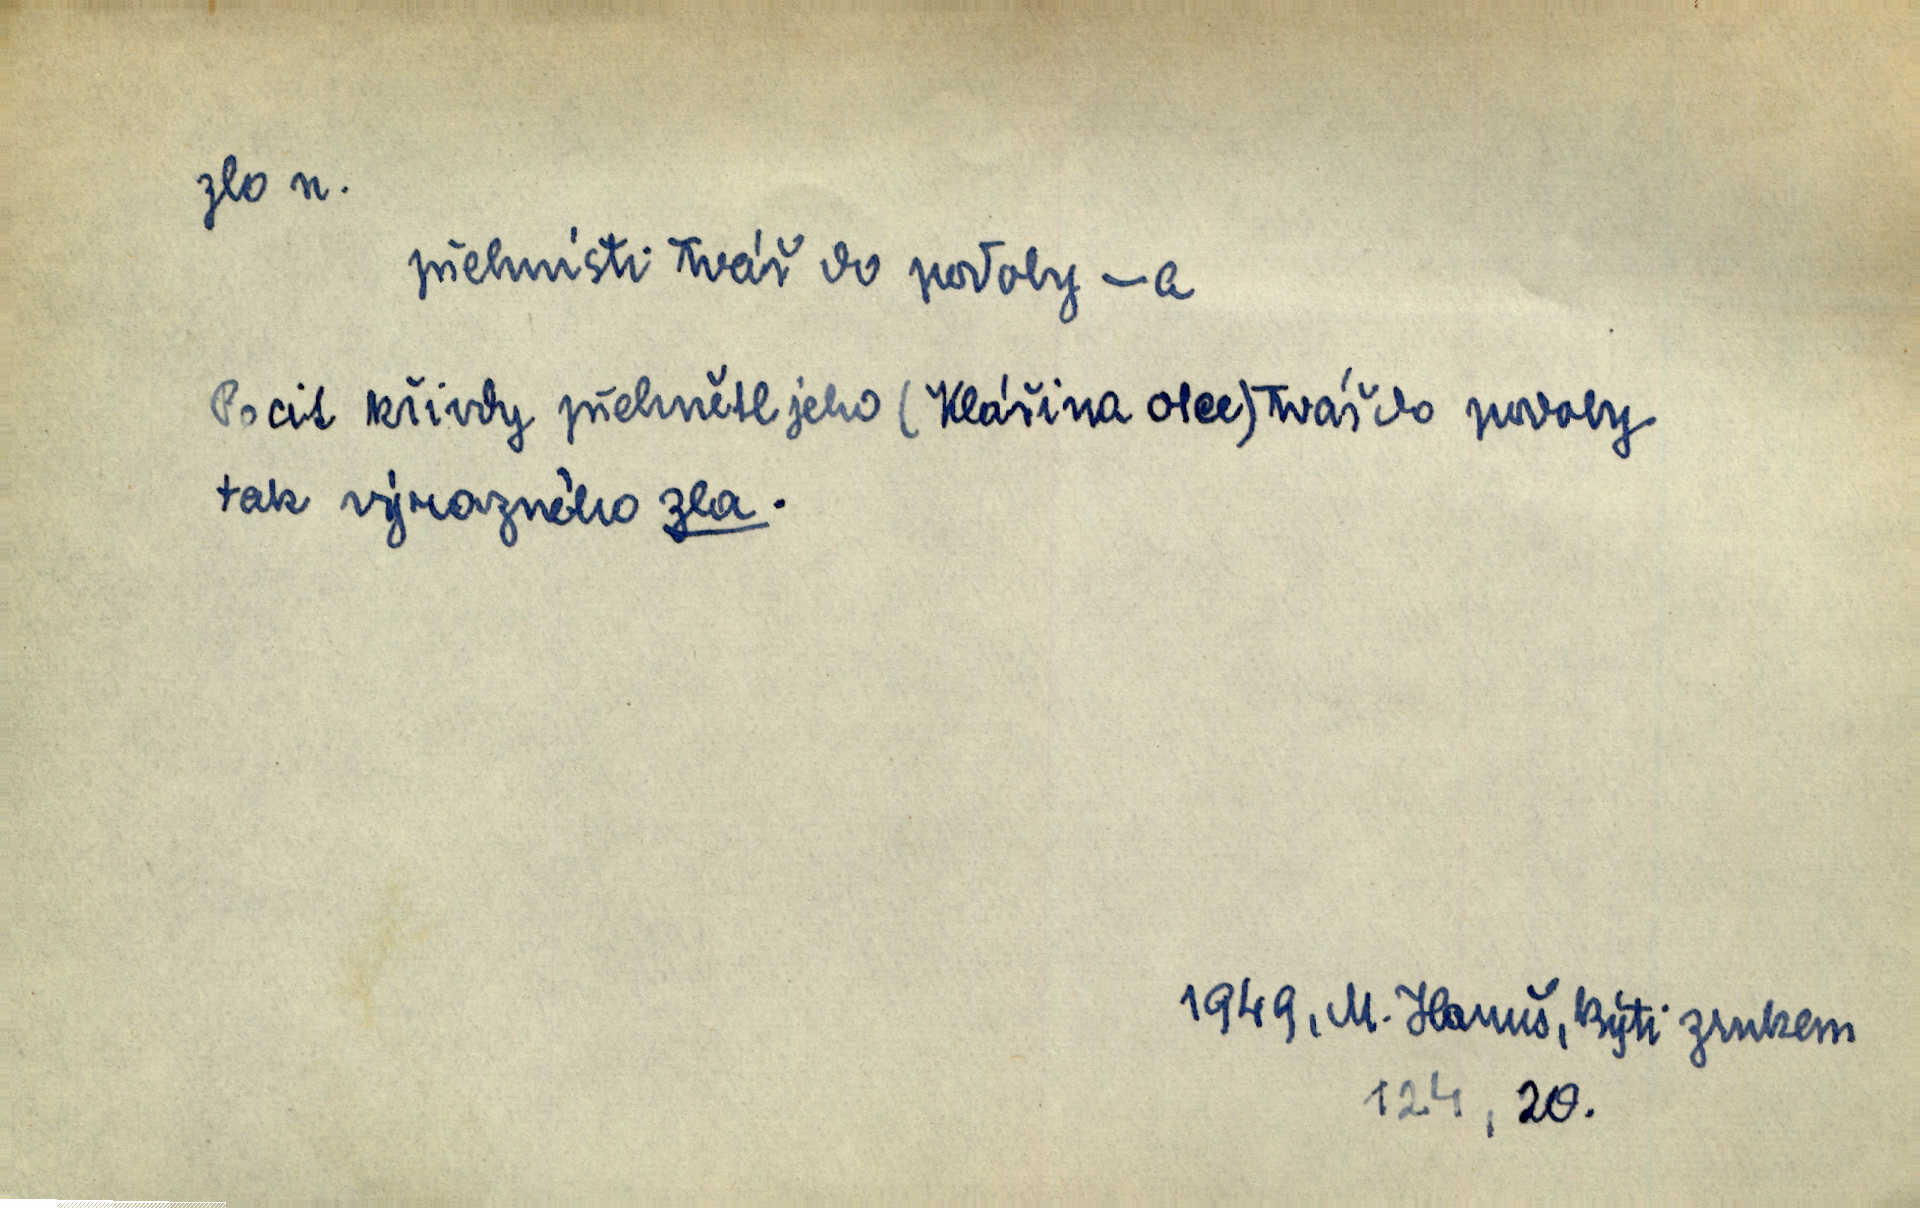 zlo n.
přehnísti tvář do podoby -a
Pocit křivdy přehnětl jeho (Klářina otce) tvář do podoby
tak výrazného zla.
1949, M. Hanuš, Býti zrnkem
124, 20.